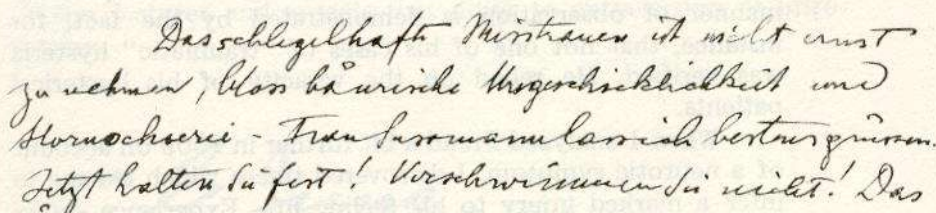 Das schlegelhafte Misstrauen ist nicht ernst
zu nehmen, bloss bäurische Ungeschicklichkeit und
Hornochserei - Frau lass ich bestens grüssen.
Jetzt halten Sie fest! Verschwimmen Sie nicht! Das